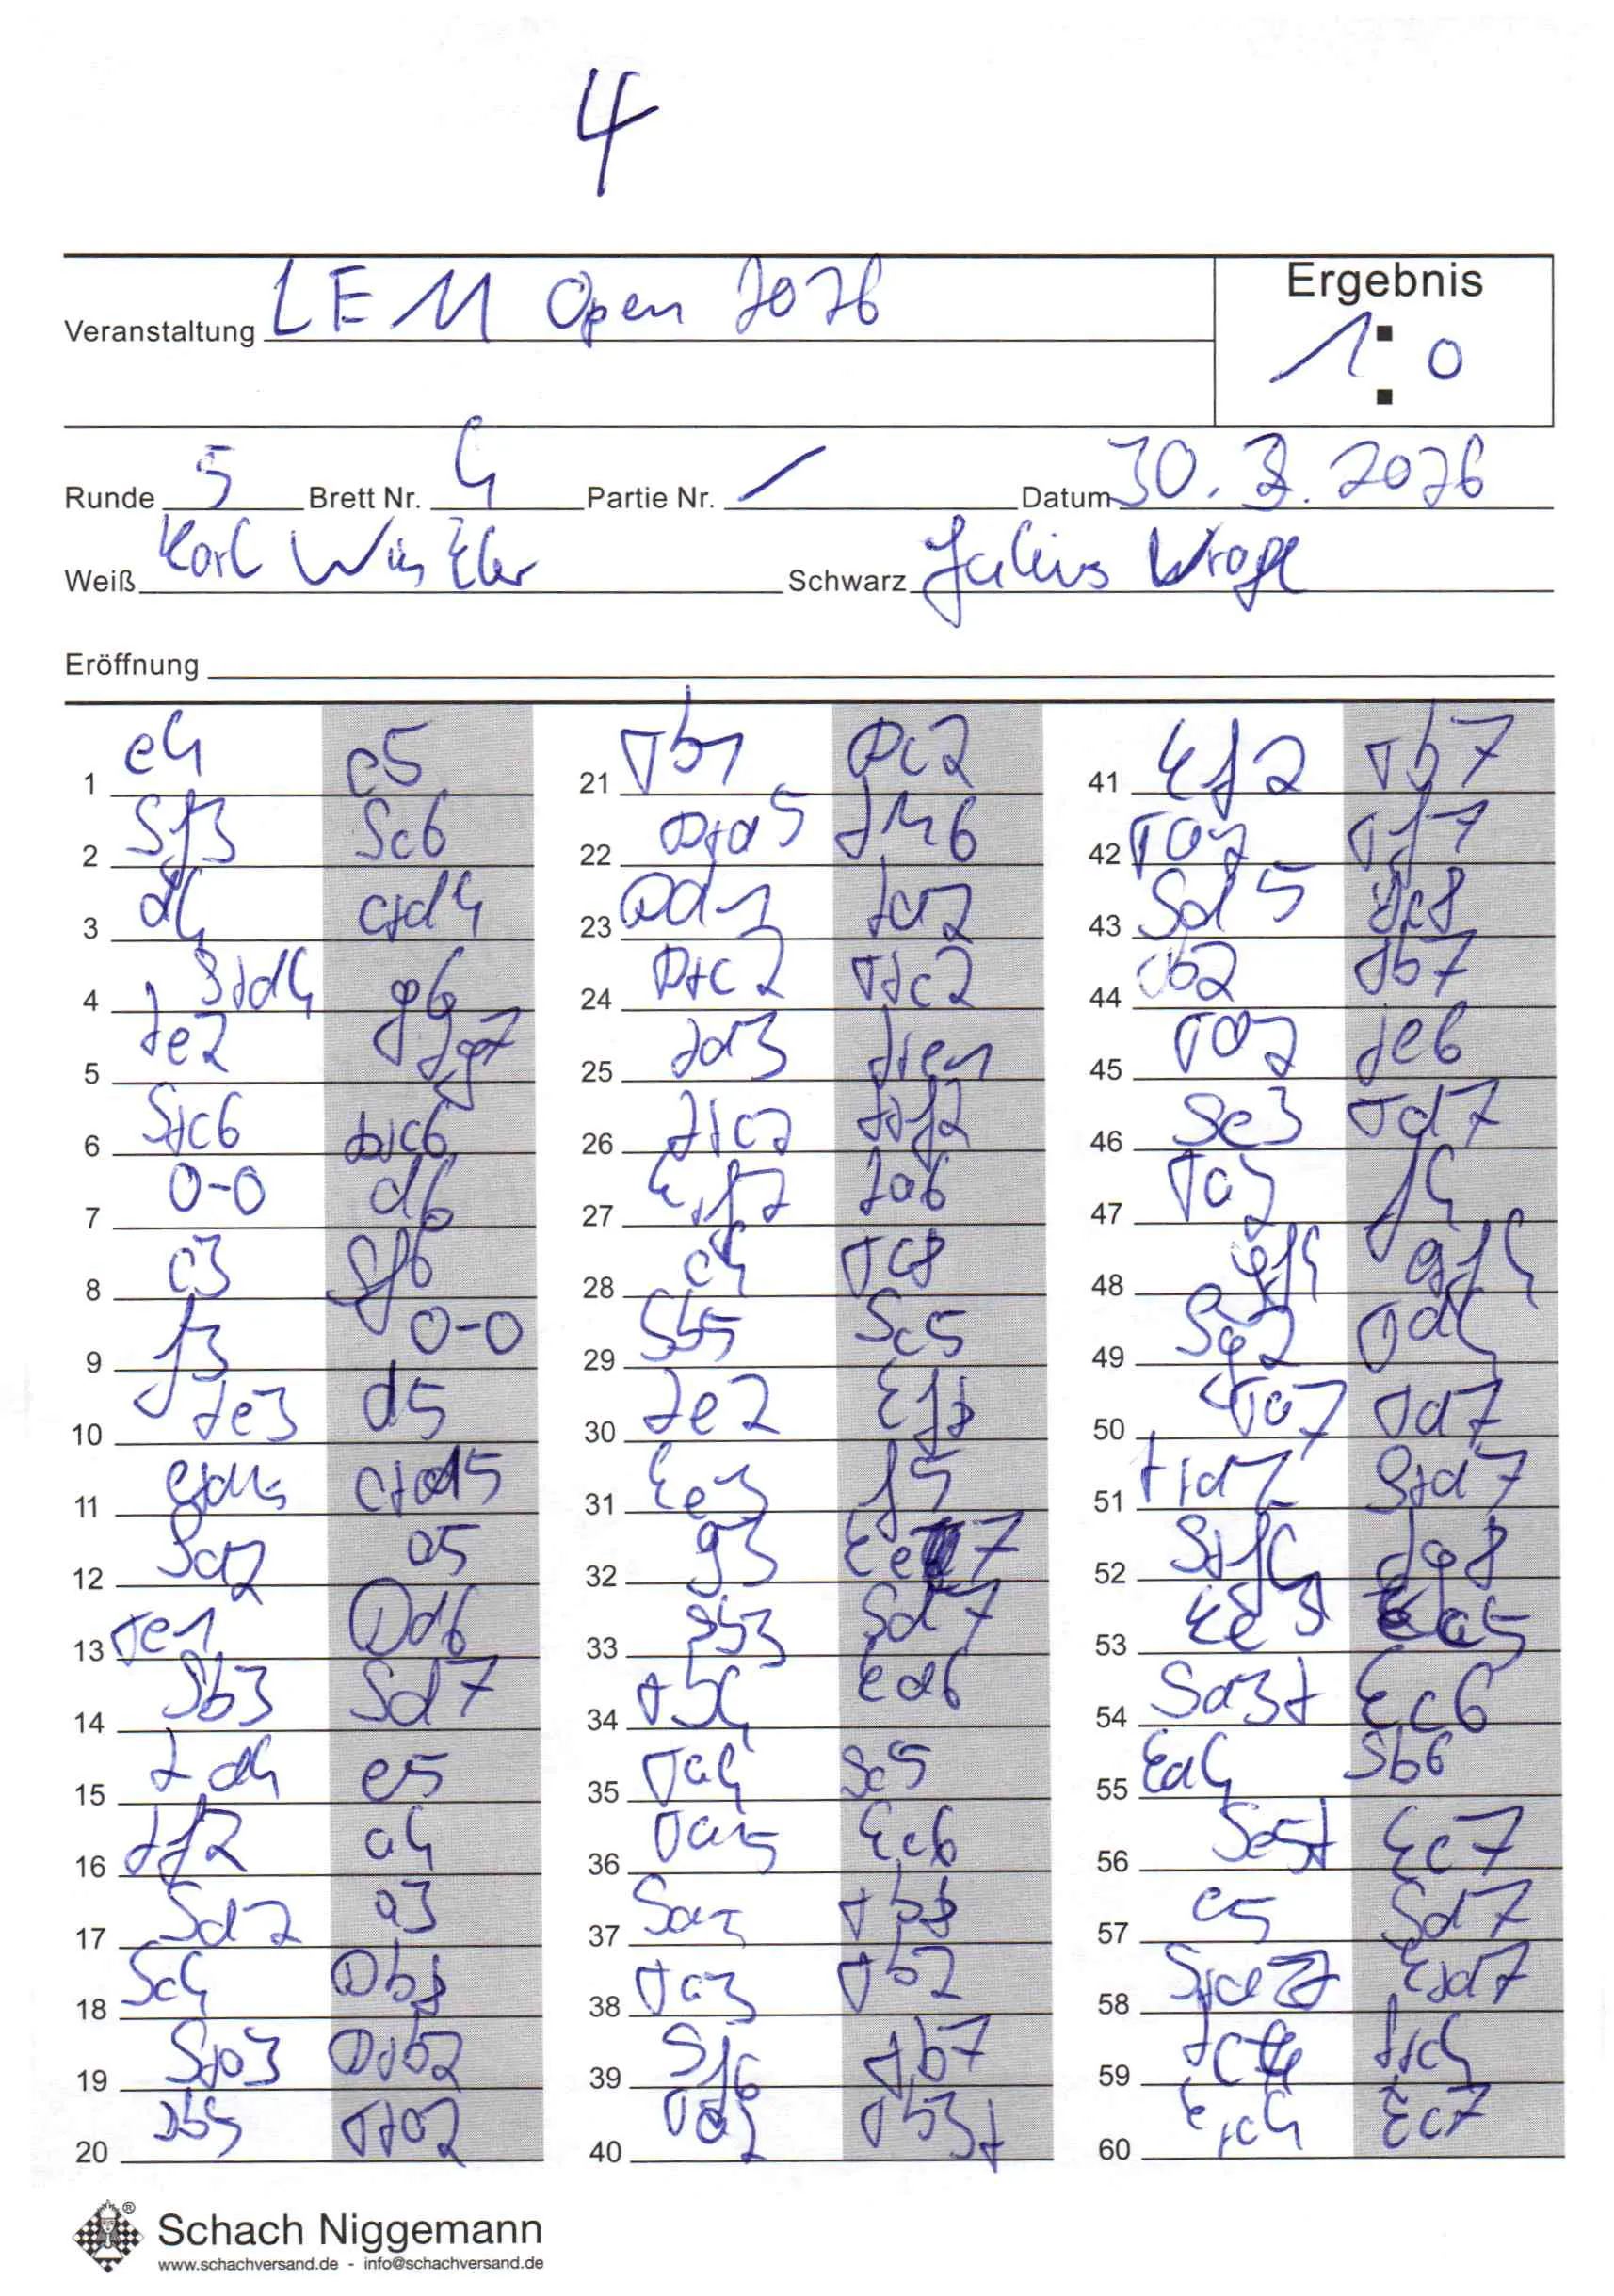 4
Veranstaltung LEM Open 2026
Ergebnis
1 : 0
Runde 5 Brett Nr. 4 Partie Nr. / Datum 30.3.2026
Weiß Karl Schwarz Julius
Eröffnung
1 e4 c5 21 Tb1 Dc2 41 Kf2 Tb7
2 Sf3 Sc6 22 Dxd5 Lh6 42 Ta2 Tf7
3 d4 cxd4 23 Dd1 La2 43 Sd5 Lc8
4 Sxd4 g6 24 Dxc2 Txc2 44 b2 Tb7
5 Le2 Lg7 25 Ld3 Lxe1 45 Ta2 Le6
6 Sxc6 bxc6 26 Lxc2 Lxf2 46 Se3 Td7
7 0-0 d6 27 Kxf2 La6 47 Ta3 f4
8 c3 Sf6 28 c4 Tc8 48 gf4 gf4
9 f3 0-0 29 Sb5 Sc5 49 Sg2 Td4
10 Le3 d5 30 Le2 Kf8 50 Ta7 Td7
11 exd5 cxd5 31 Ke3 f5 51 Txd7 Sxd7
12 Sd2 a5 32 g3 Ke7 52 Sxf4 Lg8
13 Te1 Dd6 33 Sb3 Sd7 53 Ke3 Kc5
14 Sb3 Sd7 34 Tb4 Kd6 54 Sd3+ Kc6
15 Ld4 e5 35 Ta4 Sc5 55 Kd4 Sb6
16 Lf2 a4 36 Ta5 Kc6 56 Se5+ Kc7
17 Sd2 a3 37 Sa3 Tb8 57 c5 Sd7
18 Sc4 Db8 38 Ta3 Tb2 58 Sxd7 Kxd7
19 Sxa3 Dxb2 39 Sf6 Tb7 59 Lc4 Lxc4
20 Db5 Txa2 40 Ta2 Tb3+ 60 Kxc4 Kc7
®
Schach Niggemann
www.schachversand.de - info@schachversand.de